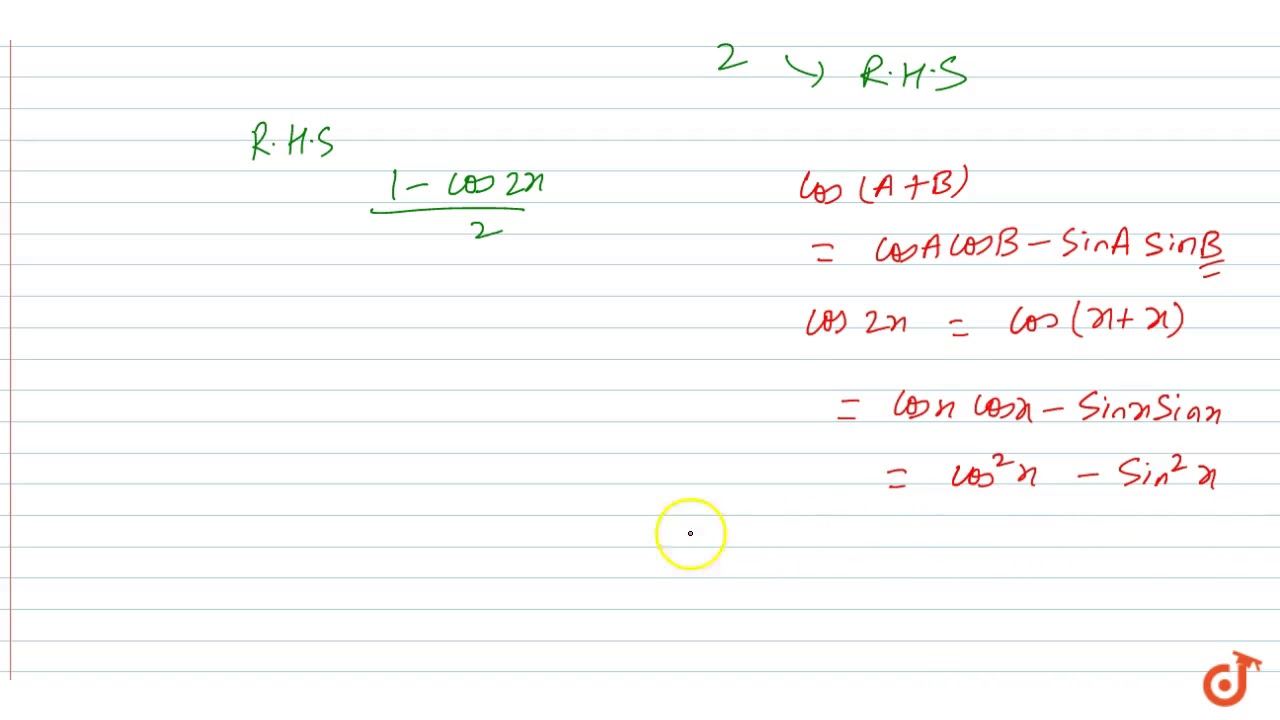 2 ↘ R.H.S
R.H.S
1 - cos 2x
2
cos (A+B)
= cosA cosB - sinA sinB
cos 2x = cos (x + x)
= cosx cosx - sinx sinx
= cos²x - sin²x